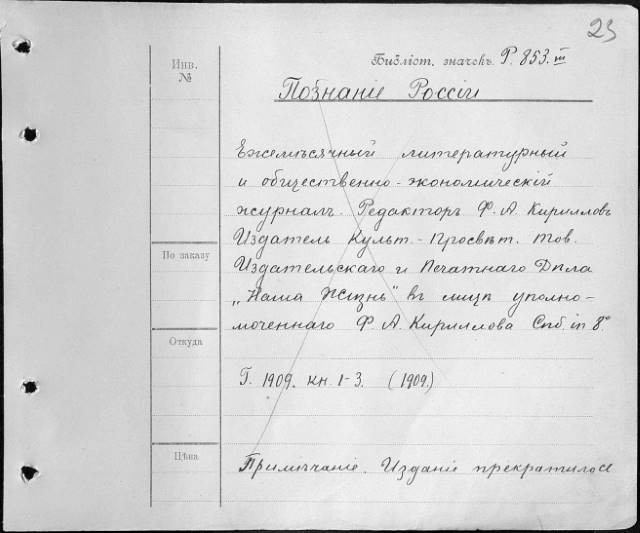 23
Инв.
№
Библіот. значекъ Р. 853. III
Познаніе Россіи
Ежемѣсячный литературный
и общественно-экономическій
журналъ. Редакторъ Ф. А. Кирилловъ
Издатель Культ.-Просвѣт. Тов.
По заказу
Издательскаго и Печатнаго Дѣла
„Наша Жизнь" въ лицѣ уполно-
моченнаго Ф. А. Кириллова Спб. in 8°
Откуда
Г. 1909. кн. 1-3. (1909.)
Цѣна
Примѣчаніе. Изданіе прекратилось